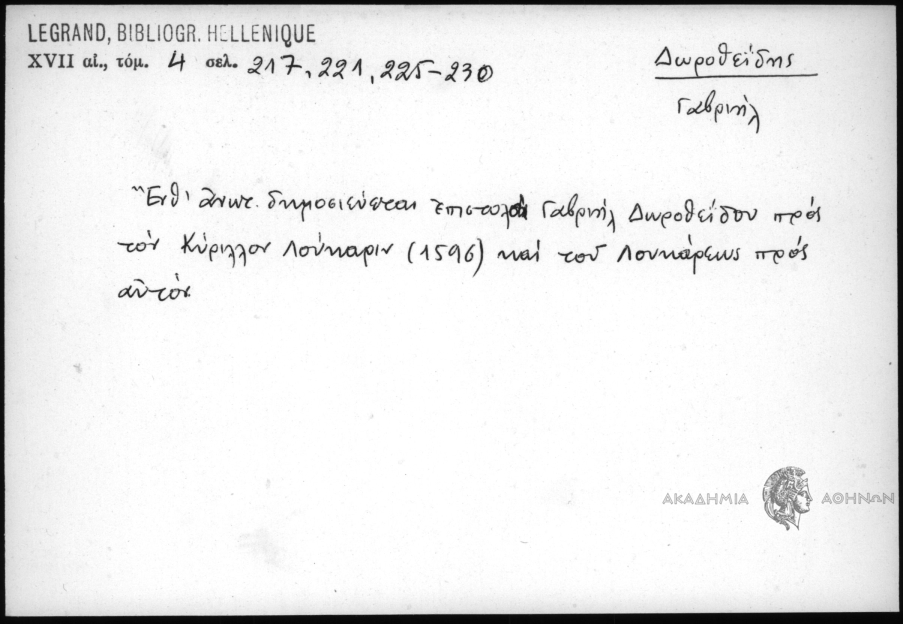 LEGRAND, BIBLIOGR. HELLENIQUE
XVII αἰ., τόμ. 4 σελ. 217, 221, 225-230
Δωροθεΐδης
Γαβριήλ
Ἔνθ' ἄνωτ. δημοσιεύεται ἐπιστολὴ Γαβριήλ Δωροθεΐδου πρός
τόν Κύριλλον Λούκαριν (1596) καί τοῦ Λουκάρεως πρός
αὐτόν
ΑΚΑΔΗΜΙΑ ΑΘΗΝΩΝ